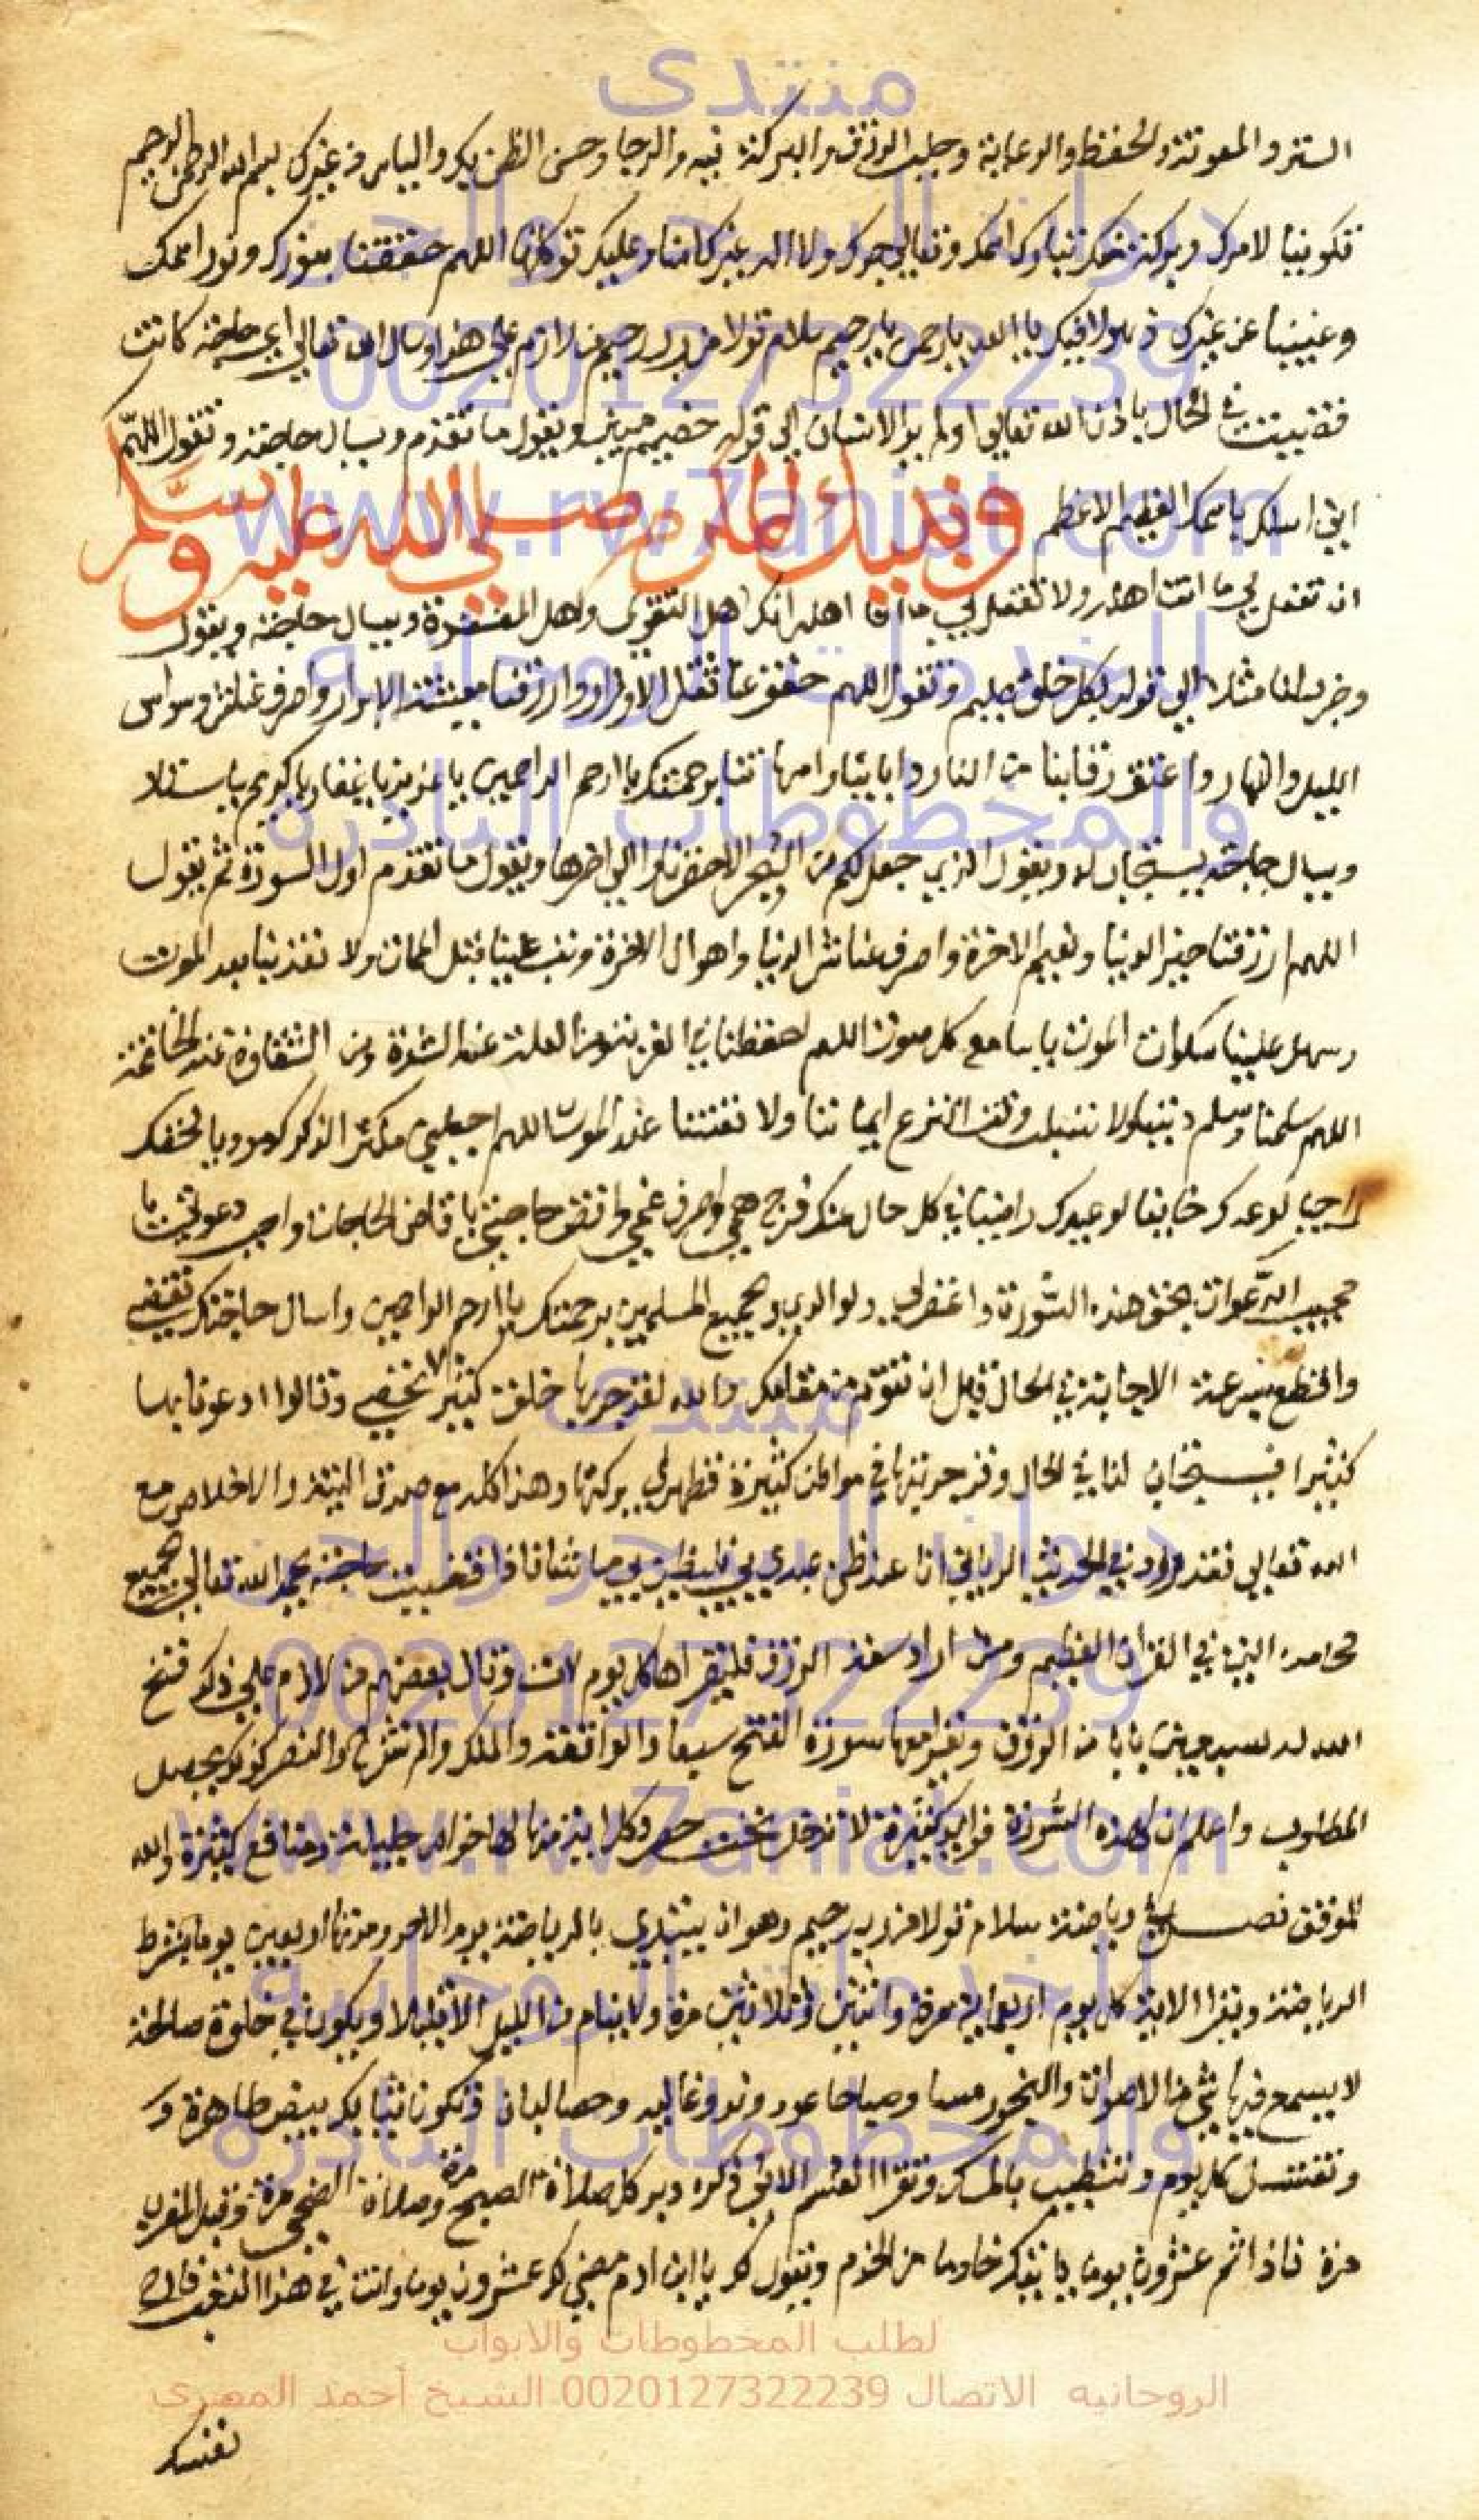 منتدى
الستر والمعونة والحفظ والرعاية وجلب الرزق والبركة فيه والرجا وحسن الظن بك والياس من غيرك بسم الله الرحمن الرحيم
تكوينيا لامرك وبركة منك تبارك اسمك وتعالى جدك ولا اله غيرك امنا وعليك توكلنا اللهم حققنا بنورك ونور اسمك
وغيبنا عن غيرك يا الله يا رحمن يا رحيم سلام قولا من رب رحيم من لازم على هذا وسال الله تعالى اي حاجة كانت
قضيت في الحال باذن الله تعالى اولم ير الانسان الى قوله خصيم مبين ويقول ما تقدم ويسال حاجته وتقول اللهم
اني اسئلك باسمك العظيم الاعظم وبنبيك محمد صلى الله عليه وسلم
ان تفعل بي ما انت اهله ولا تفعل بي ما انا اهله انك اهل التقوى واهل المغفرة ويسال حاجته ويقول
وضرب لنا مثلا الى قوله بكل خلق عليم وتقول اللهم خفف عنا ثقل الاوزار وارزقنا معيشة الابرار واصرف عنا شر وسواس
الليل والنهار واعتق رقابنا من النار وابائنا وامهاتنا برحمتك يا ارحم الراحمين يا عزيز يا غفار يا كريم يا ستار
ويسال حاجته يستجاب له ويقول الذي جعل لكم من الشجر الاخضر نارا الى اخرها ويقول ما تقدم اول السورة ثم يقول
اللهم ارزقنا خير الدنيا ونعيم الاخرة واصرف عنا شر الدنيا واهوال الاخرة وتب علينا قبل الممات ولا تعذبنا بعد الموت
وسهل علينا سكرات الموت يا سامع كل صوت اللهم احفظنا في الغربة ومن العلة عند الشدة ومن الشقاوة عند الخاتمة
اللهم سلمنا وسلم ديننا ولا تسلب وقت النزع ايماننا ولا تفتنا عند الموت اللهم اجعلني مكثر الذكرك
راجيا لوعدك خايفا لوعيدك راضيا في كل حال عنك فرج همي واصرف غمي واقض حاجتي يا قاضي الحاجات واجب دعوتي يا
مجيب الدعوات بحق هذه السورة واغفر لي ولوالدي ولجميع المسلمين برحمتك يا ارحم الراحمين واسال حاجتك تقضى
الاجابة في الحال قبل ان تقوم من مقامك والله لقد جربها خلق كثير لا تحصى وقالوا دعونا بها
كثيرا فيستجاب لنا في الحال وقد جربتها في مواطن كثيرة فظهر لي بركتها وهذا كله مع صدق النية والاخلاص مع
الله تعالى فقد ورد في الحديث الرباني انا عند ظن عبدي بي فليظن بي ما شاء فاذا قضيت حاجته يحمد الله تعالى بجميع
محامده التي في القران العظيم ومن اراد سعة الرزق فليقراها كل يوم وقال بعضهم من لازم على ذلك فتح
الله له سبعين بابا من الرزق ويقرا معها سورة الفتح سبعا والواقعة والملك والم نشرح والنصر يحصل
المطلوب واعلم ان لهذه السورة فوايد كثيرة لا تدخل تحت حصر وكل اية منها لها خواص جليلة ومنافع كثيرة والله
الموفق فصل في رياضة سلام قولا من رب رحيم وهو ان يبتدي بالرياضة يوم الاحد ومدتها اربعين يوما بشرط
الرياضة ويقرا الاية كل يوم اربعماية مرة واثنين وثلاثين مرة ولا ينام من الليل الا قليلا ويكون في خلوة صالحة
لا يسمع فيها شي من الاصوات والبخور مسا وصباحا عود وند وغاليه وحصا لبان وتكون ثيابك بيض طاهرة و
وتغتسل كل يوم وتتطيب بالمسك وتقرا القسم الاتي ذكره دبر كل صلاة الصبح مرة وصلاة الضحى مرة وقبل المغرب
مرة فاذا تم عشرون يوما ياتيك خادما من الخدم ويقول لك يا ابن ادم مضي لك عشرون يوما وانت في هذا التعب
لطلب المخطوطات والابواب
الروحانيه الاتصال 0020127322239 الشيخ أحمد المصري
نفسك
ديوان السحر والجن
0020127322239
www.rw7aniat.com
للخدمات الروحانيه
والمخطوطات النادرة
منتدى
ديوان السحر والجن
0020127322239
www.rw7aniat.com
للخدمات الروحانيه
والمخطوطات النادرة